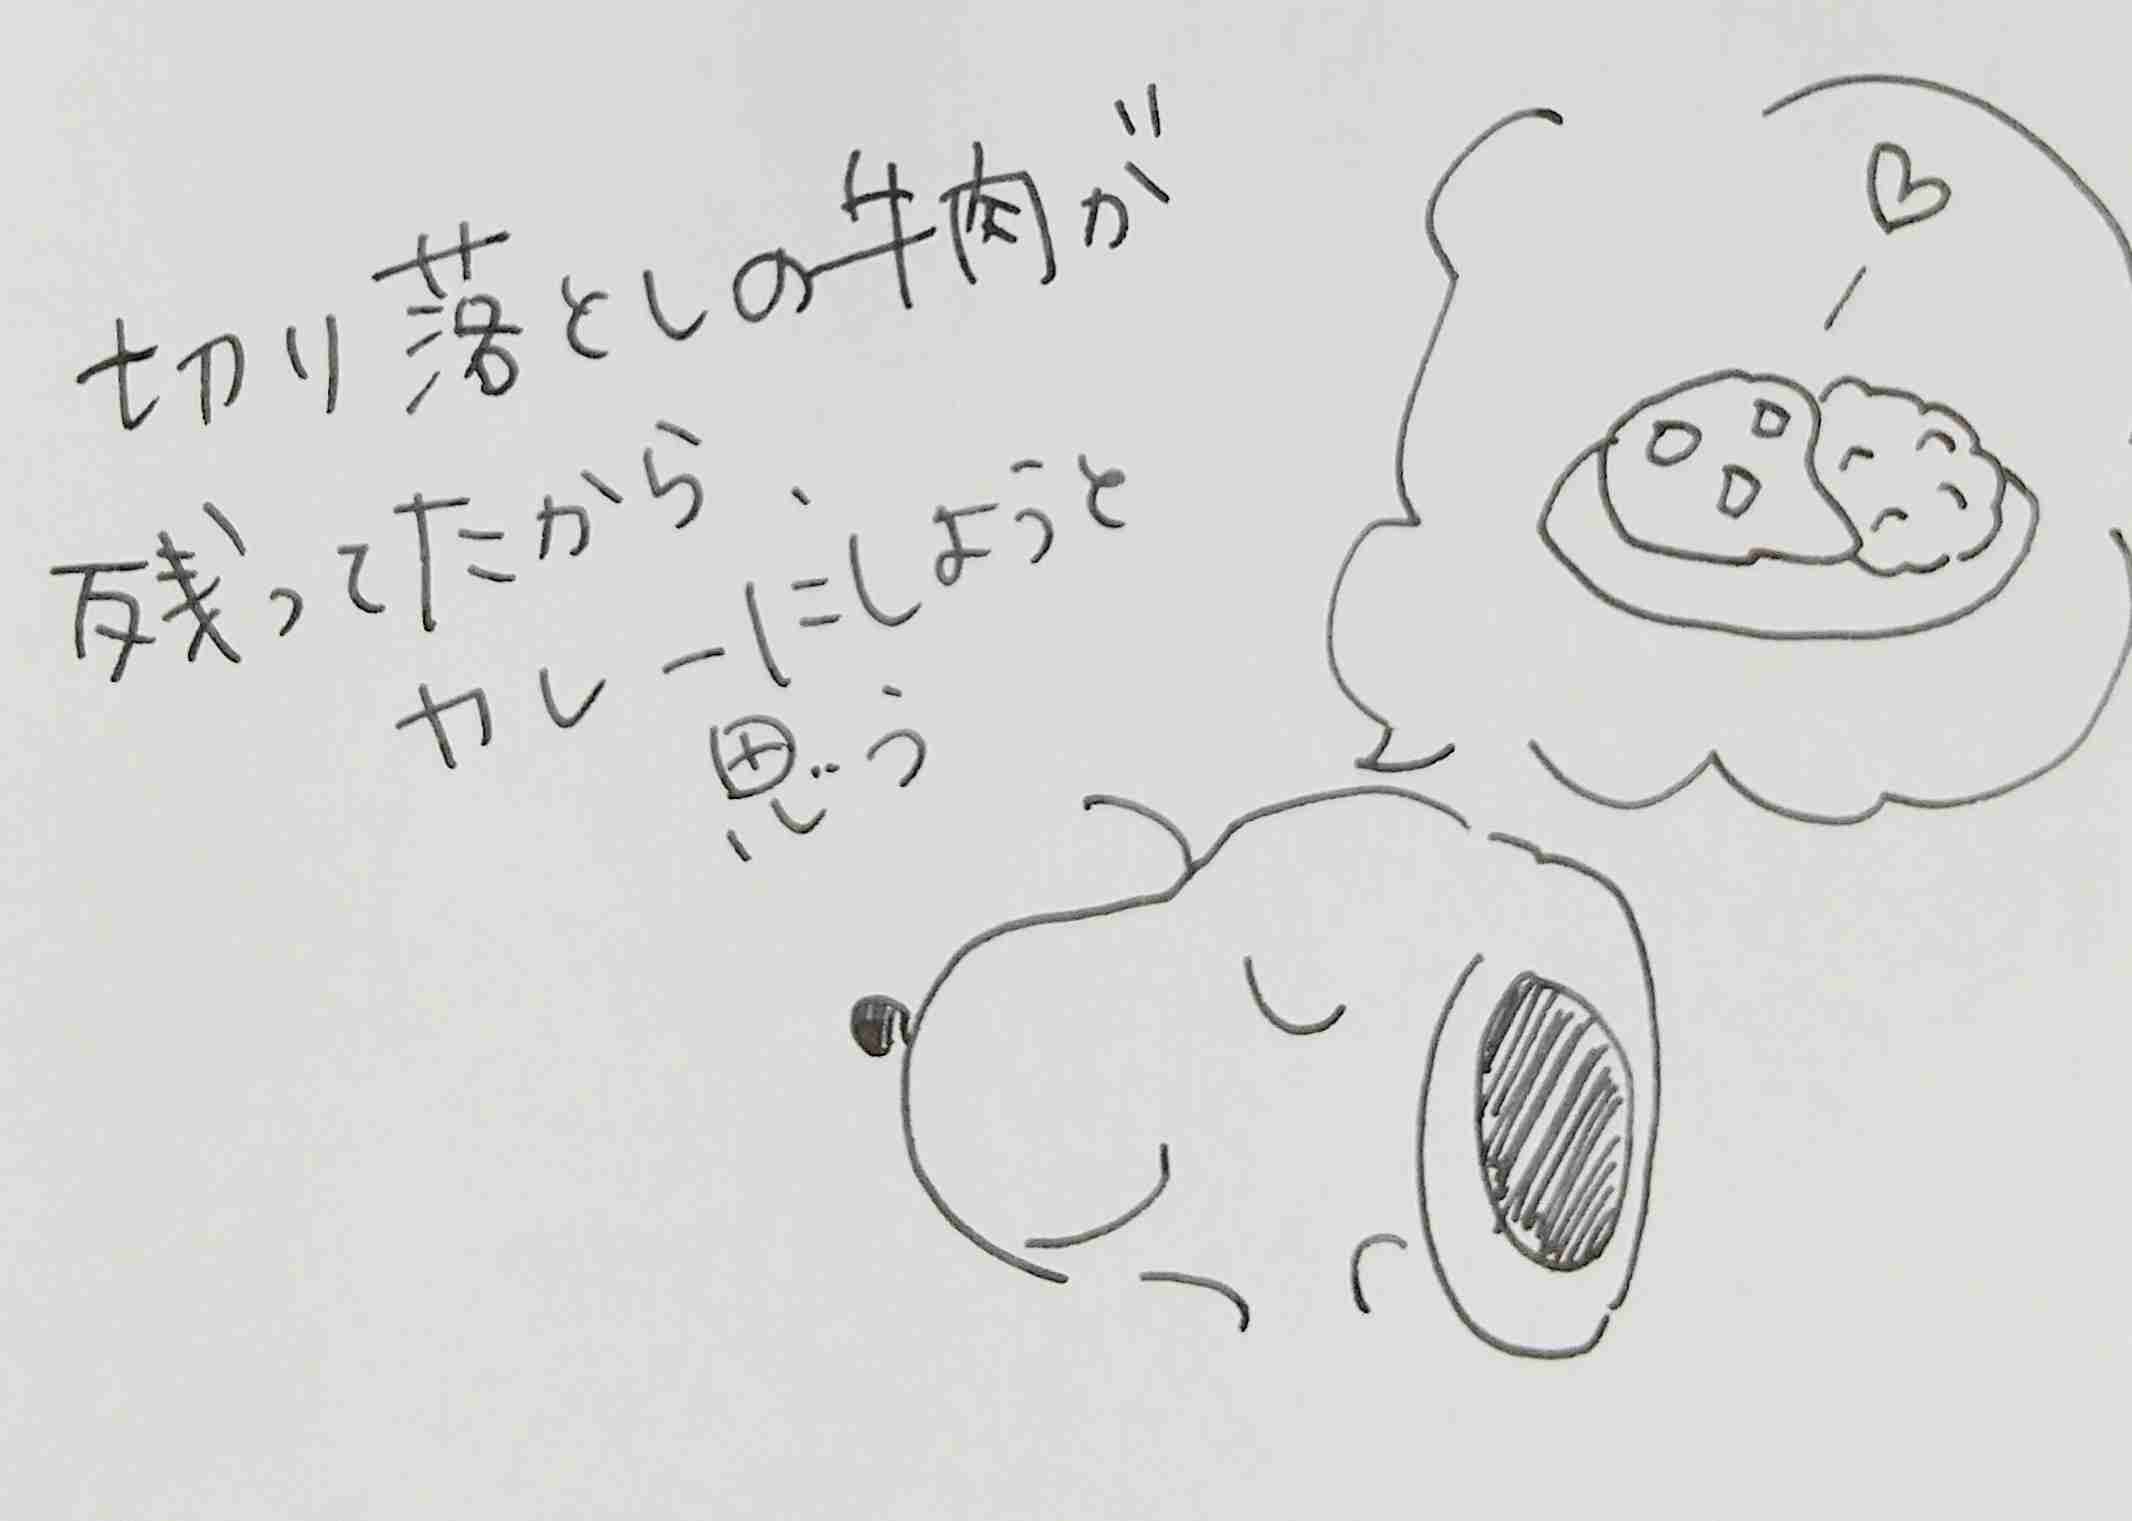 切り落としの牛肉が
残ってたから、
カレーにしようと
思う